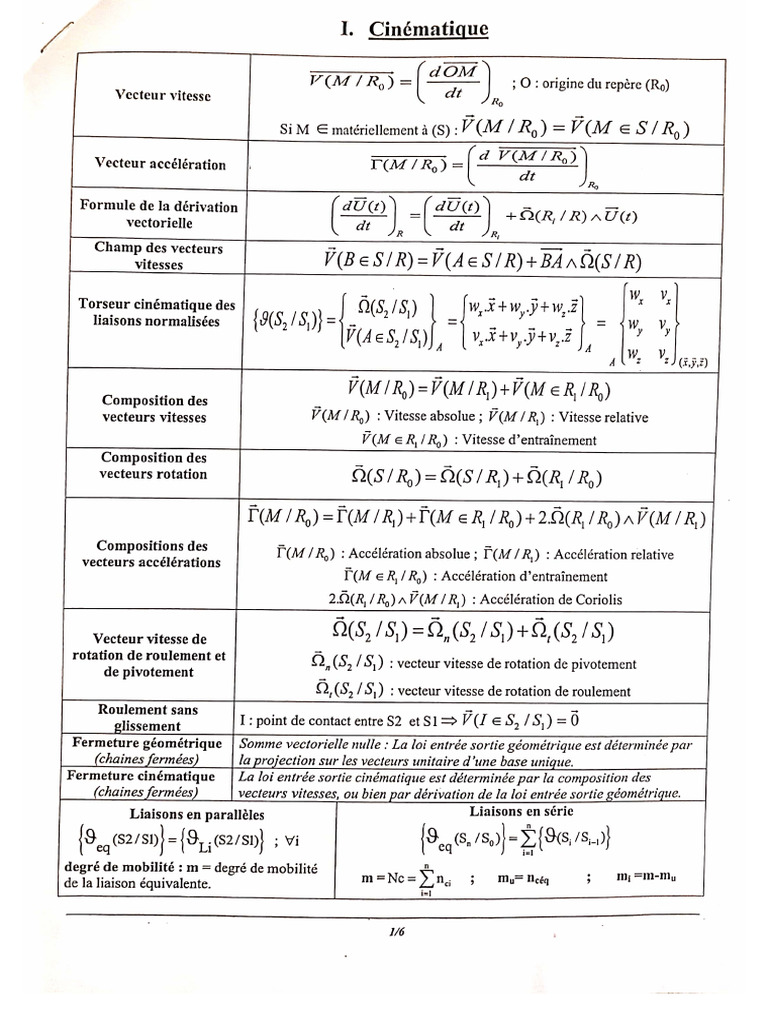 I. Cinématique
Vecteur vitesse
V(M / R₀) = (d OM / dt)_R₀ ; O : origine du repère (R₀)
Si M ∈ matériellement à (S) : V⃗(M / R₀) = V⃗(M ∈ S / R₀)
Vecteur accélération
Γ(M / R₀) = (d V(M / R₀) / dt)_R₀
Formule de la dérivation
vectorielle
(dU(t) / dt)_R = (dU(t) / dt)_Rᵢ + Ω⃗(Rᵢ / R) ∧ U(t)
Champ des vecteurs
vitesses
V⃗(B ∈ S / R) = V⃗(A ∈ S / R) + BA ∧ Ω⃗(S / R)
Torseur cinématique des
liaisons normalisées
{ϑ(S₂ / S₁)} = {Ω⃗(S₂ / S₁) V⃗(A ∈ S₂ / S₁)}_A = {w_x.x⃗ + w_y.y⃗ + w_z.z⃗ v_x.x⃗ + v_y.y⃗ + v_z.z⃗}_A = _A{w_x v_x w_y v_y w_z v_z}_(x⃗,y⃗,z⃗)
Composition des
vecteurs vitesses
V⃗(M / R₀) = V⃗(M / R₁) + V⃗(M ∈ R₁ / R₀)
V⃗(M / R₀) : Vitesse absolue ; V⃗(M / R₁) : Vitesse relative
V⃗(M ∈ R₁ / R₀) : Vitesse d'entraînement
Composition des
vecteurs rotation
Ω⃗(S / R₀) = Ω⃗(S / R₁) + Ω⃗(R₁ / R₀)
Compositions des
vecteurs accélérations
Γ⃗(M / R₀) = Γ⃗(M / R₁) + Γ⃗(M ∈ R₁ / R₀) + 2.Ω⃗(R₁ / R₀) ∧ V⃗(M / R₁)
Γ⃗(M / R₀) : Accélération absolue ; Γ⃗(M / R₁) : Accélération relative
Γ⃗(M ∈ R₁ / R₀) : Accélération d'entraînement
2.Ω⃗(R₁ / R₀) ∧ V⃗(M / R₁) : Accélération de Coriolis
Vecteur vitesse de
rotation de roulement et
de pivotement
Ω⃗(S₂ / S₁) = Ω⃗ₙ(S₂ / S₁) + Ω⃗ₜ(S₂ / S₁)
Ω⃗ₙ(S₂ / S₁) : vecteur vitesse de rotation de pivotement
Ω⃗ₜ(S₂ / S₁) : vecteur vitesse de rotation de roulement
Roulement sans
glissement
I : point de contact entre S2 et S1 ⇒ V⃗(I ∈ S₂ / S₁) = 0⃗
Fermeture géométrique
(chaines fermées)
Somme vectorielle nulle : La loi entrée sortie géométrique est déterminée par
la projection sur les vecteurs unitaire d'une base unique.
Fermeture cinématique
(chaines fermées)
La loi entrée sortie cinématique est déterminée par la composition des
vecteurs vitesses, ou bien par dérivation de la loi entrée sortie géométrique.
Liaisons en parallèles
{ϑ_eq(S2/S1)} = {ϑ_Li(S2/S1)} ; ∀i
degré de mobilité : m = degré de mobilité
de la liaison équivalente.
Liaisons en série
{ϑ_eq(Sₙ/S₀)} = Σ_{i=1}^{n} {ϑ(Sᵢ/Sᵢ₋₁)}
m = Nc = Σ_{i=1}^{n} n_ci ; m_u = n_céq ; m_i = m-m_u
1/6